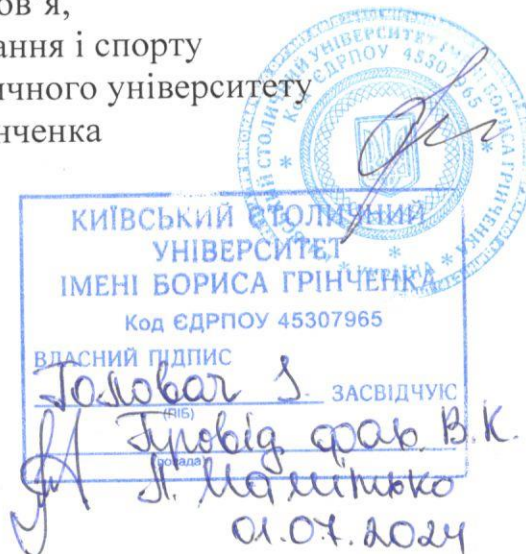 ов'я,
ання і спорту
ичного університету
нченка
УНІВЕРСИТЕТ ІМЕНІ БОРИСА ГРІНЧЕНКА
СТОЛИЧНИЙ
Код ЄДРПОУ 45307965
* УКРАЇНА *
КИЇВСЬКИЙ СТОЛИЧНИЙ
УНІВЕРСИТЕТ
ІМЕНІ БОРИСА ГРІНЧЕНКА
Код ЄДРПОУ 45307965
ВЛАСНИЙ ПІДПИС
Головач І. ЗАСВІДЧУЮ
(ПІБ)
Провід фах. В.К.
(посада)
01.07.2024